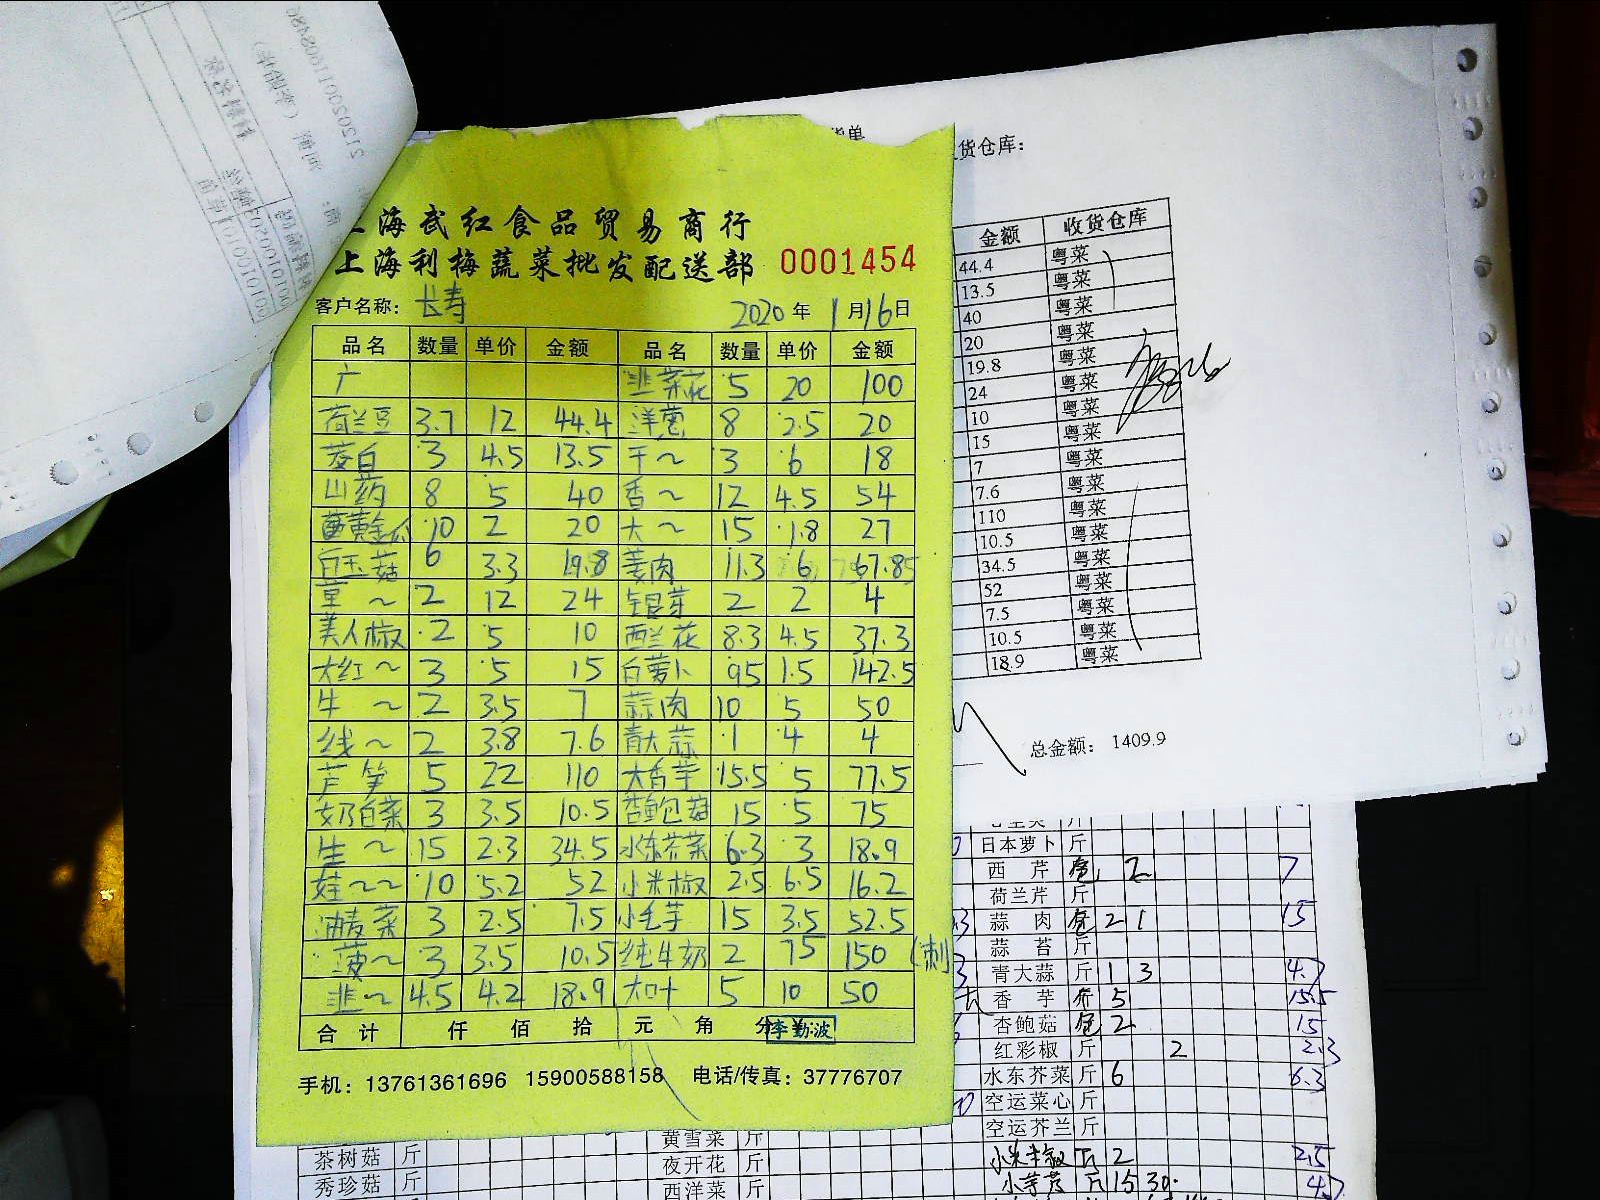 上海武红食品贸易商行
上海利梅蔬菜批发配送部 0001454
客户名称: 长寿 2020 年 1 月 16 日
品名 数量 单价 金额 品名 数量 单价 金额
广 韭菜花 5 20 100
荷兰豆 3.7 12 44.4 洋葱 8 2.5 20
茭白 3 4.5 13.5 干~ 3 6 18
山药 8 5 40 香~ 12 4.5 54
黄金瓜 10 2 20 大~ 15 1.8 27
白玉菇 6 3.3 19.8 姜肉 11.3 6 67.8
草~ 2 12 24 银芽 2 2 4
美人椒 2 5 10 西兰花 8.3 4.5 37.3
大红~ 3 5 15 白萝卜 95 1.5 142.5
牛~ 2 3.5 7 蒜肉 10 5 50
线~ 2 3.8 7.6 青大蒜 1 4 4
芦笋 5 22 110 大香芋 15.5 5 77.5
奶白菜 3 3.5 10.5 杏鲍菇 15 5 75
生~ 15 2.3 34.5 水东芥菜 6.3 3 18.9
娃~~ 10 5.2 52 小米椒 2.5 6.5 16.2
油麦菜 3 2.5 7.5 小毛芋 15 3.5 52.5
菠~ 3 3.5 10.5 纯牛奶 2 75 150
韭~ 4.5 4.2 18.9 大叶 5 10 50
合计 仟 佰 拾 元 角 分 李勤波
手机: 13761361696 15900588158 电话/传真: 37776707
货仓库:
金额 收货仓库
44.4 粤菜
13.5 粤菜
40 粤菜
20 粤菜
19.8 粤菜
24 粤菜
10 粤菜
15 粤菜
7 粤菜
7.6 粤菜
110 粤菜
10.5 粤菜
34.5 粤菜
52 粤菜
7.5 粤菜
10.5 粤菜
18.9 粤菜
总金额: 1409.9
日本萝卜 斤
西芹 2 7
荷兰芹 斤
蒜肉 2 1 15
蒜苔 斤
青大蒜 斤 1 3
香芋 5 15.5
杏鲍菇 2 15
红彩椒 斤 2 2.3
水东芥菜 斤 6 6.3
空运菜心 斤
空运芥兰 斤
小米椒 斤 2 2.5
斤 15 30
黄雪菜 斤
茶树菇 斤 夜开花 斤
秀珍菇 斤 西洋菜 斤